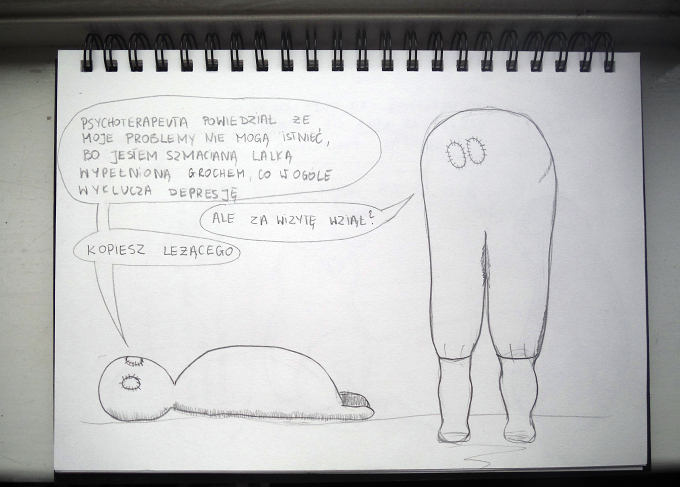 PSYCHOTERAPEUTA POWIEDZIAŁ ŻE
MOJE PROBLEMY NIE MOGĄ ISTNIEĆ,
BO JESTEM SZMACIANĄ LALKĄ
WYPEŁNIONĄ GROCHEM, CO W OGÓLE
WYKLUCZA DEPRESJĘ
ALE ZA WIZYTĘ WZIĄŁ?
KOPIESZ LEŻĄCEGO